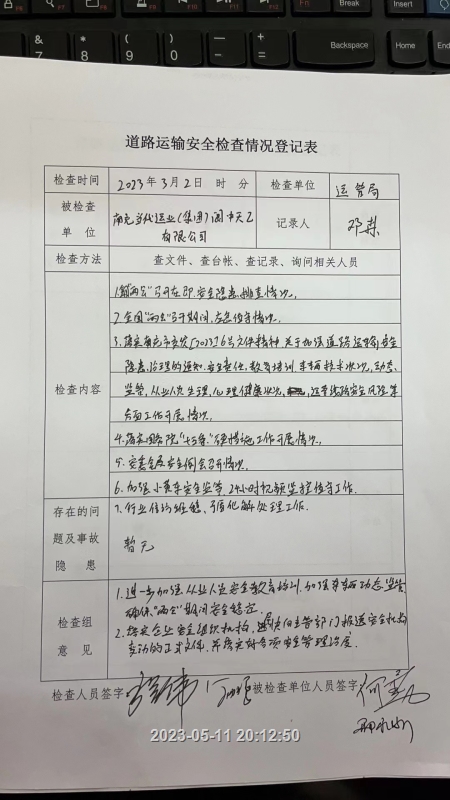 道路运输安全检查情况登记表
检查时间 2023年3月2日 时 分 检查单位 运管局
被检查单位 南充当代运业(集团)阆中天乙有限公司 记录人 邓
检查方法 查文件、查台帐、查记录、询问相关人员
检查内容
1."两会"召开在即,安全隐患排查情况。
2.全国"两会"召开期间,应急值守情况。
3.落实南充市交安[2023]6号文件精神 关于加强道路运输安全
隐患治理的通知.安全责任、教育培训.车辆技术状况、动态
监管,从业人员生理,心理健康状况,运营线路安全风险等
方面工作开展情况。
4.落实国务院"十五条"硬措施工作开展情况。
5.安委会及安全例会召开情况。
6.加强小黄车安全监管,24小时视频监控值守工作.
7.行业信访维稳、矛盾化解处理工作.
存在的问题及事故隐患
暂无
检查组意见
1.进一步加强从业人员安全教育培训,加强车辆动态监管
确保"两会"期间安全稳定.
2.落实企业安全组织机构,尽快向主管部门报送安全机构
变动的正式文件,并落实好各项安全管理制度.
检查人员签字 被检查单位人员签字
2023-05-11 20:12:50
&
7
*
8
(
9
)
0
Backspace
Break
Insert
Home
End